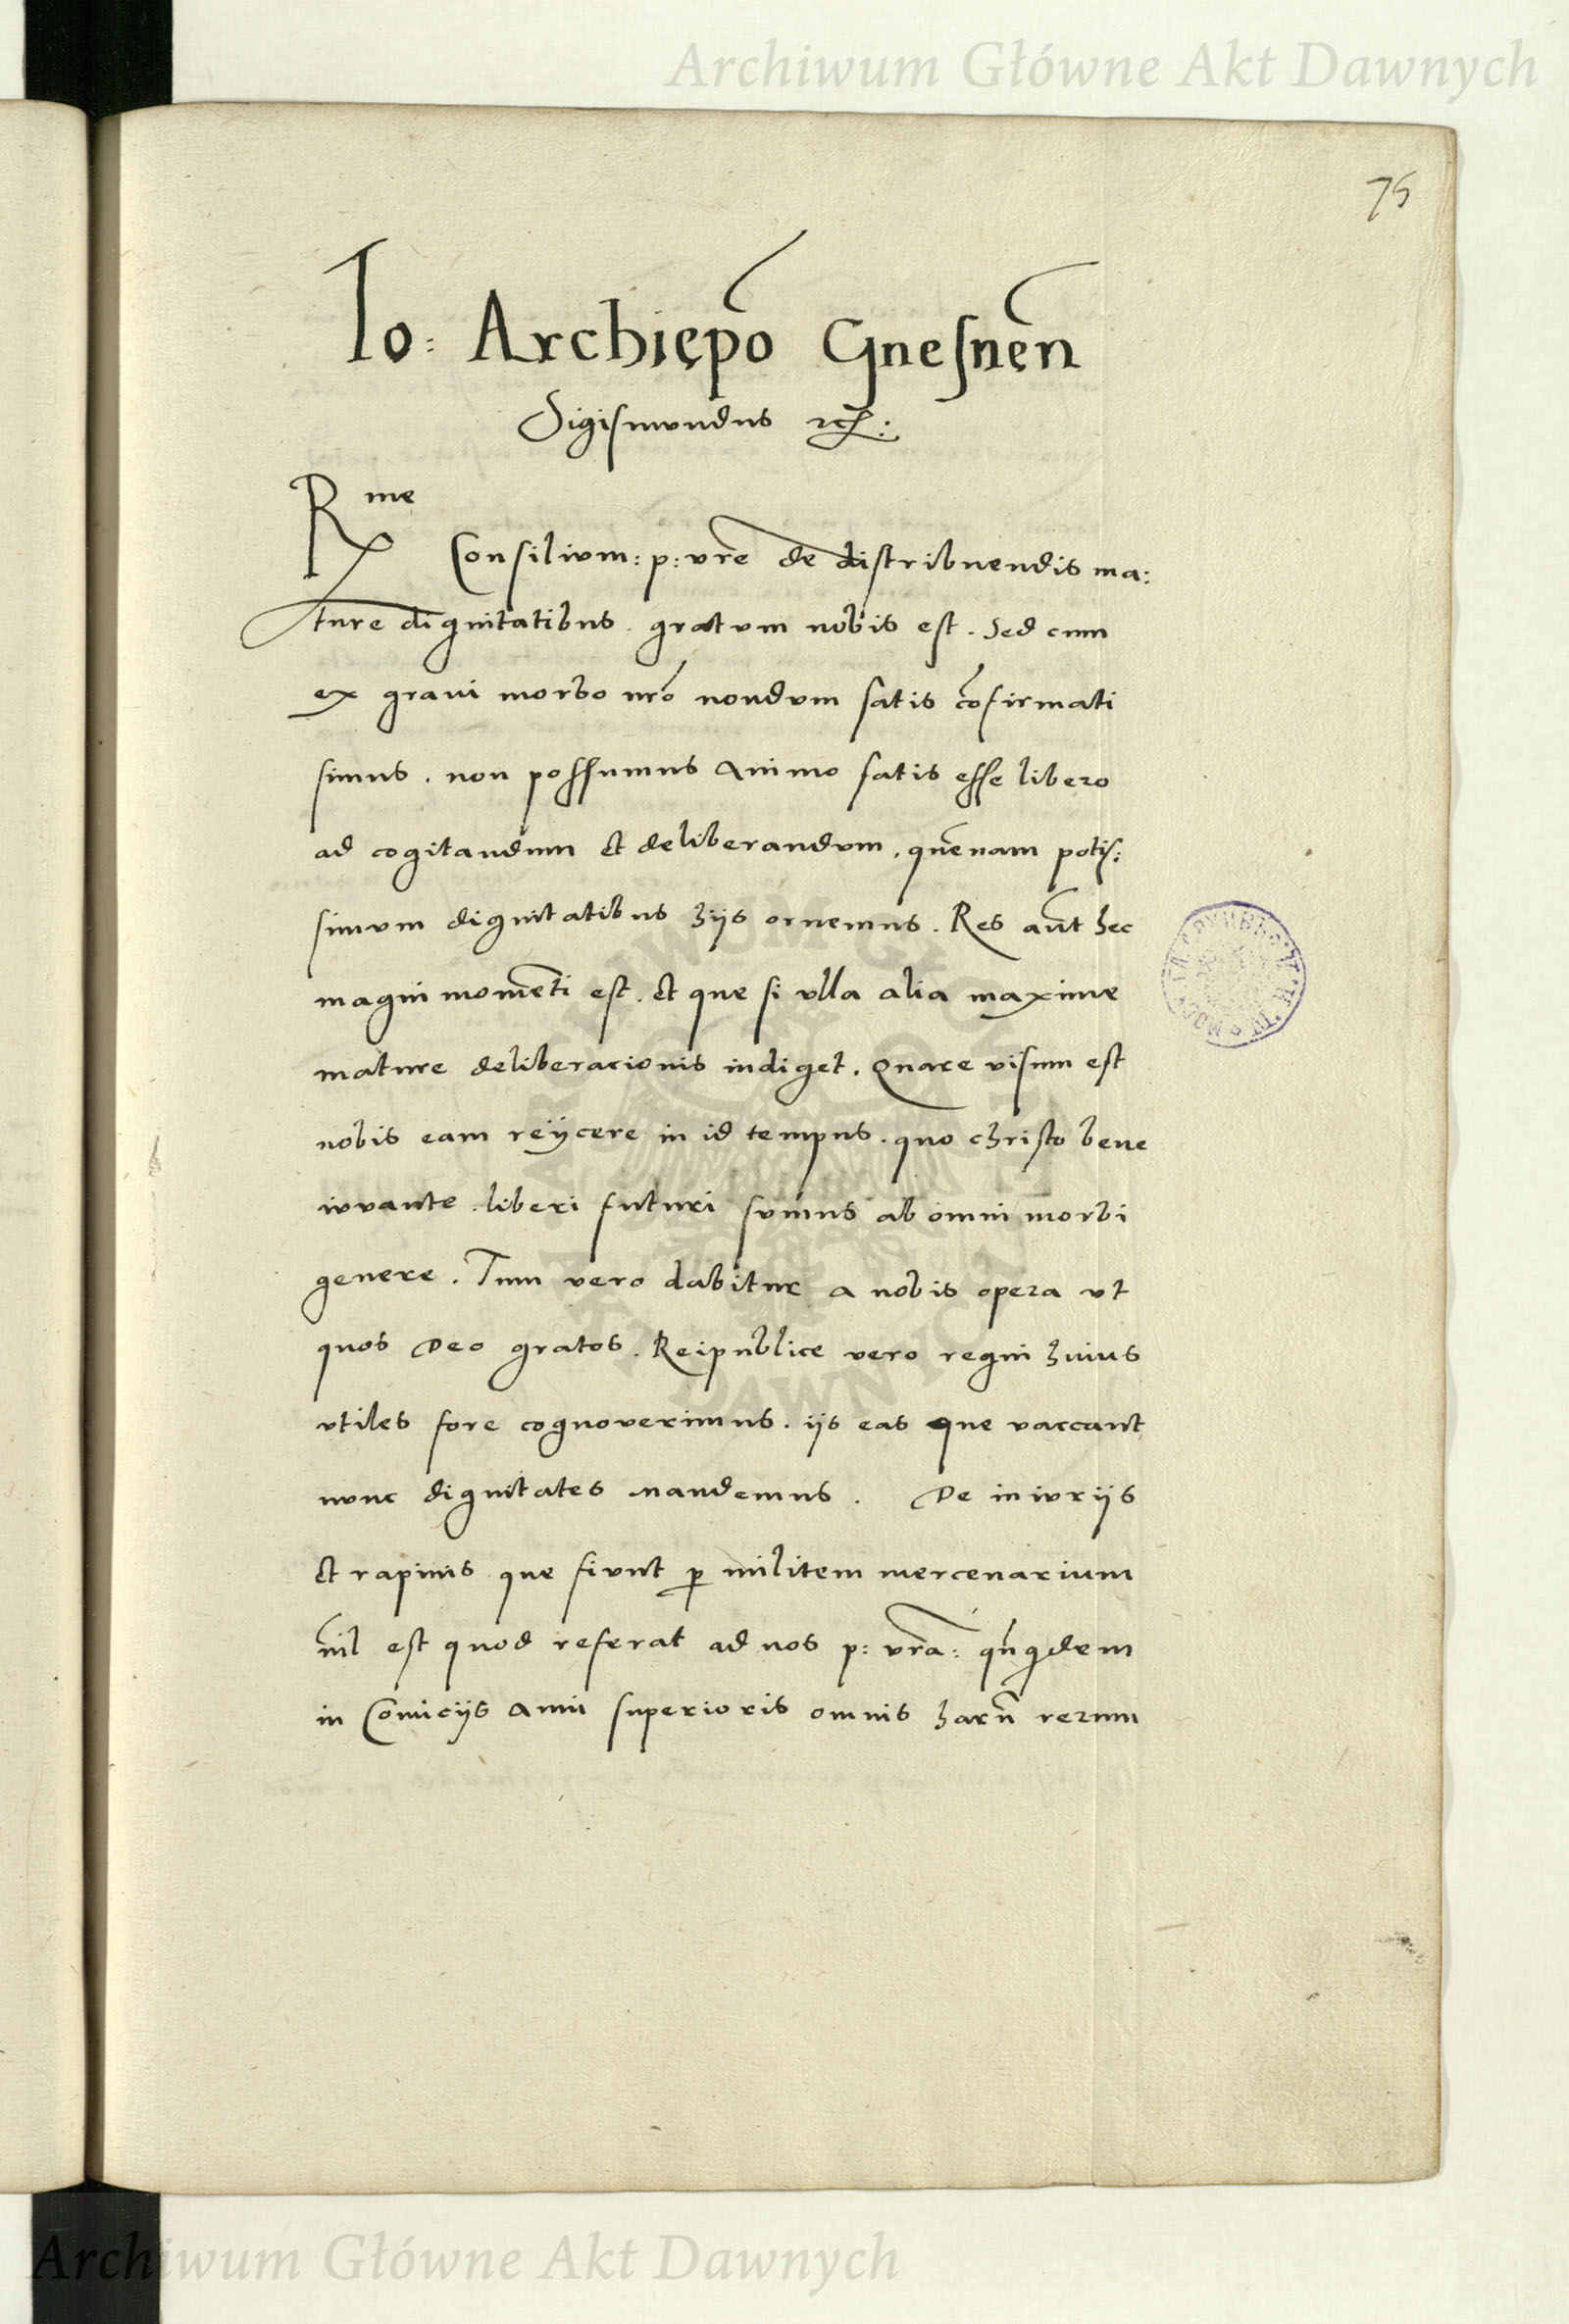 Archiwum Główne Akt Dawnych
75
Io: Archiep̄o Gnesnen̄
Sigismundus etc:
Rme
Consilium: p: vr̄e de distribuendis ma:
ture dignitatibus. gratum nobis est. Sed cum
ex graui morbo nr̄o nondum satis cōfirmati
simus. non possumus animo satis esse libero
ad cogitandum et deliberandum. quēnam potis:
simum dignitatibus hijs ornemus. Res aūt hec
magni momēti est. et que si vlla alia maxime
mature deliberacionis indiget. Quare visum est
nobis eam reijcere in id tempus. quo christo bene
iuuante. liberi futuri sumus ab omni morbi
genere. Tum vero dabitur a nobis opera vt
quos Deo gratos. Reipublice vero regni huius
vtiles fore cognouerimus. ijs eas que vaccant
nunc dignitates mandemus. De iniurijs
et rapinis que fiunt ꝑ militem mercenarium
nīl est quod referat ad nos p: vr̄a: qn̄qdem
in Comicijs anni superioris omnis harū rerum
Archiwum Główne Akt Dawnych